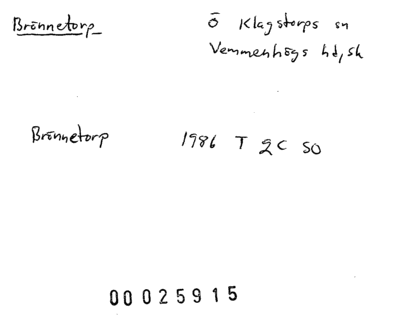 Brönnetorp Ö Klagstorps sn
Vemmenhögs hd, sk
Brönnetorp 1986 T 2C SO
00025915